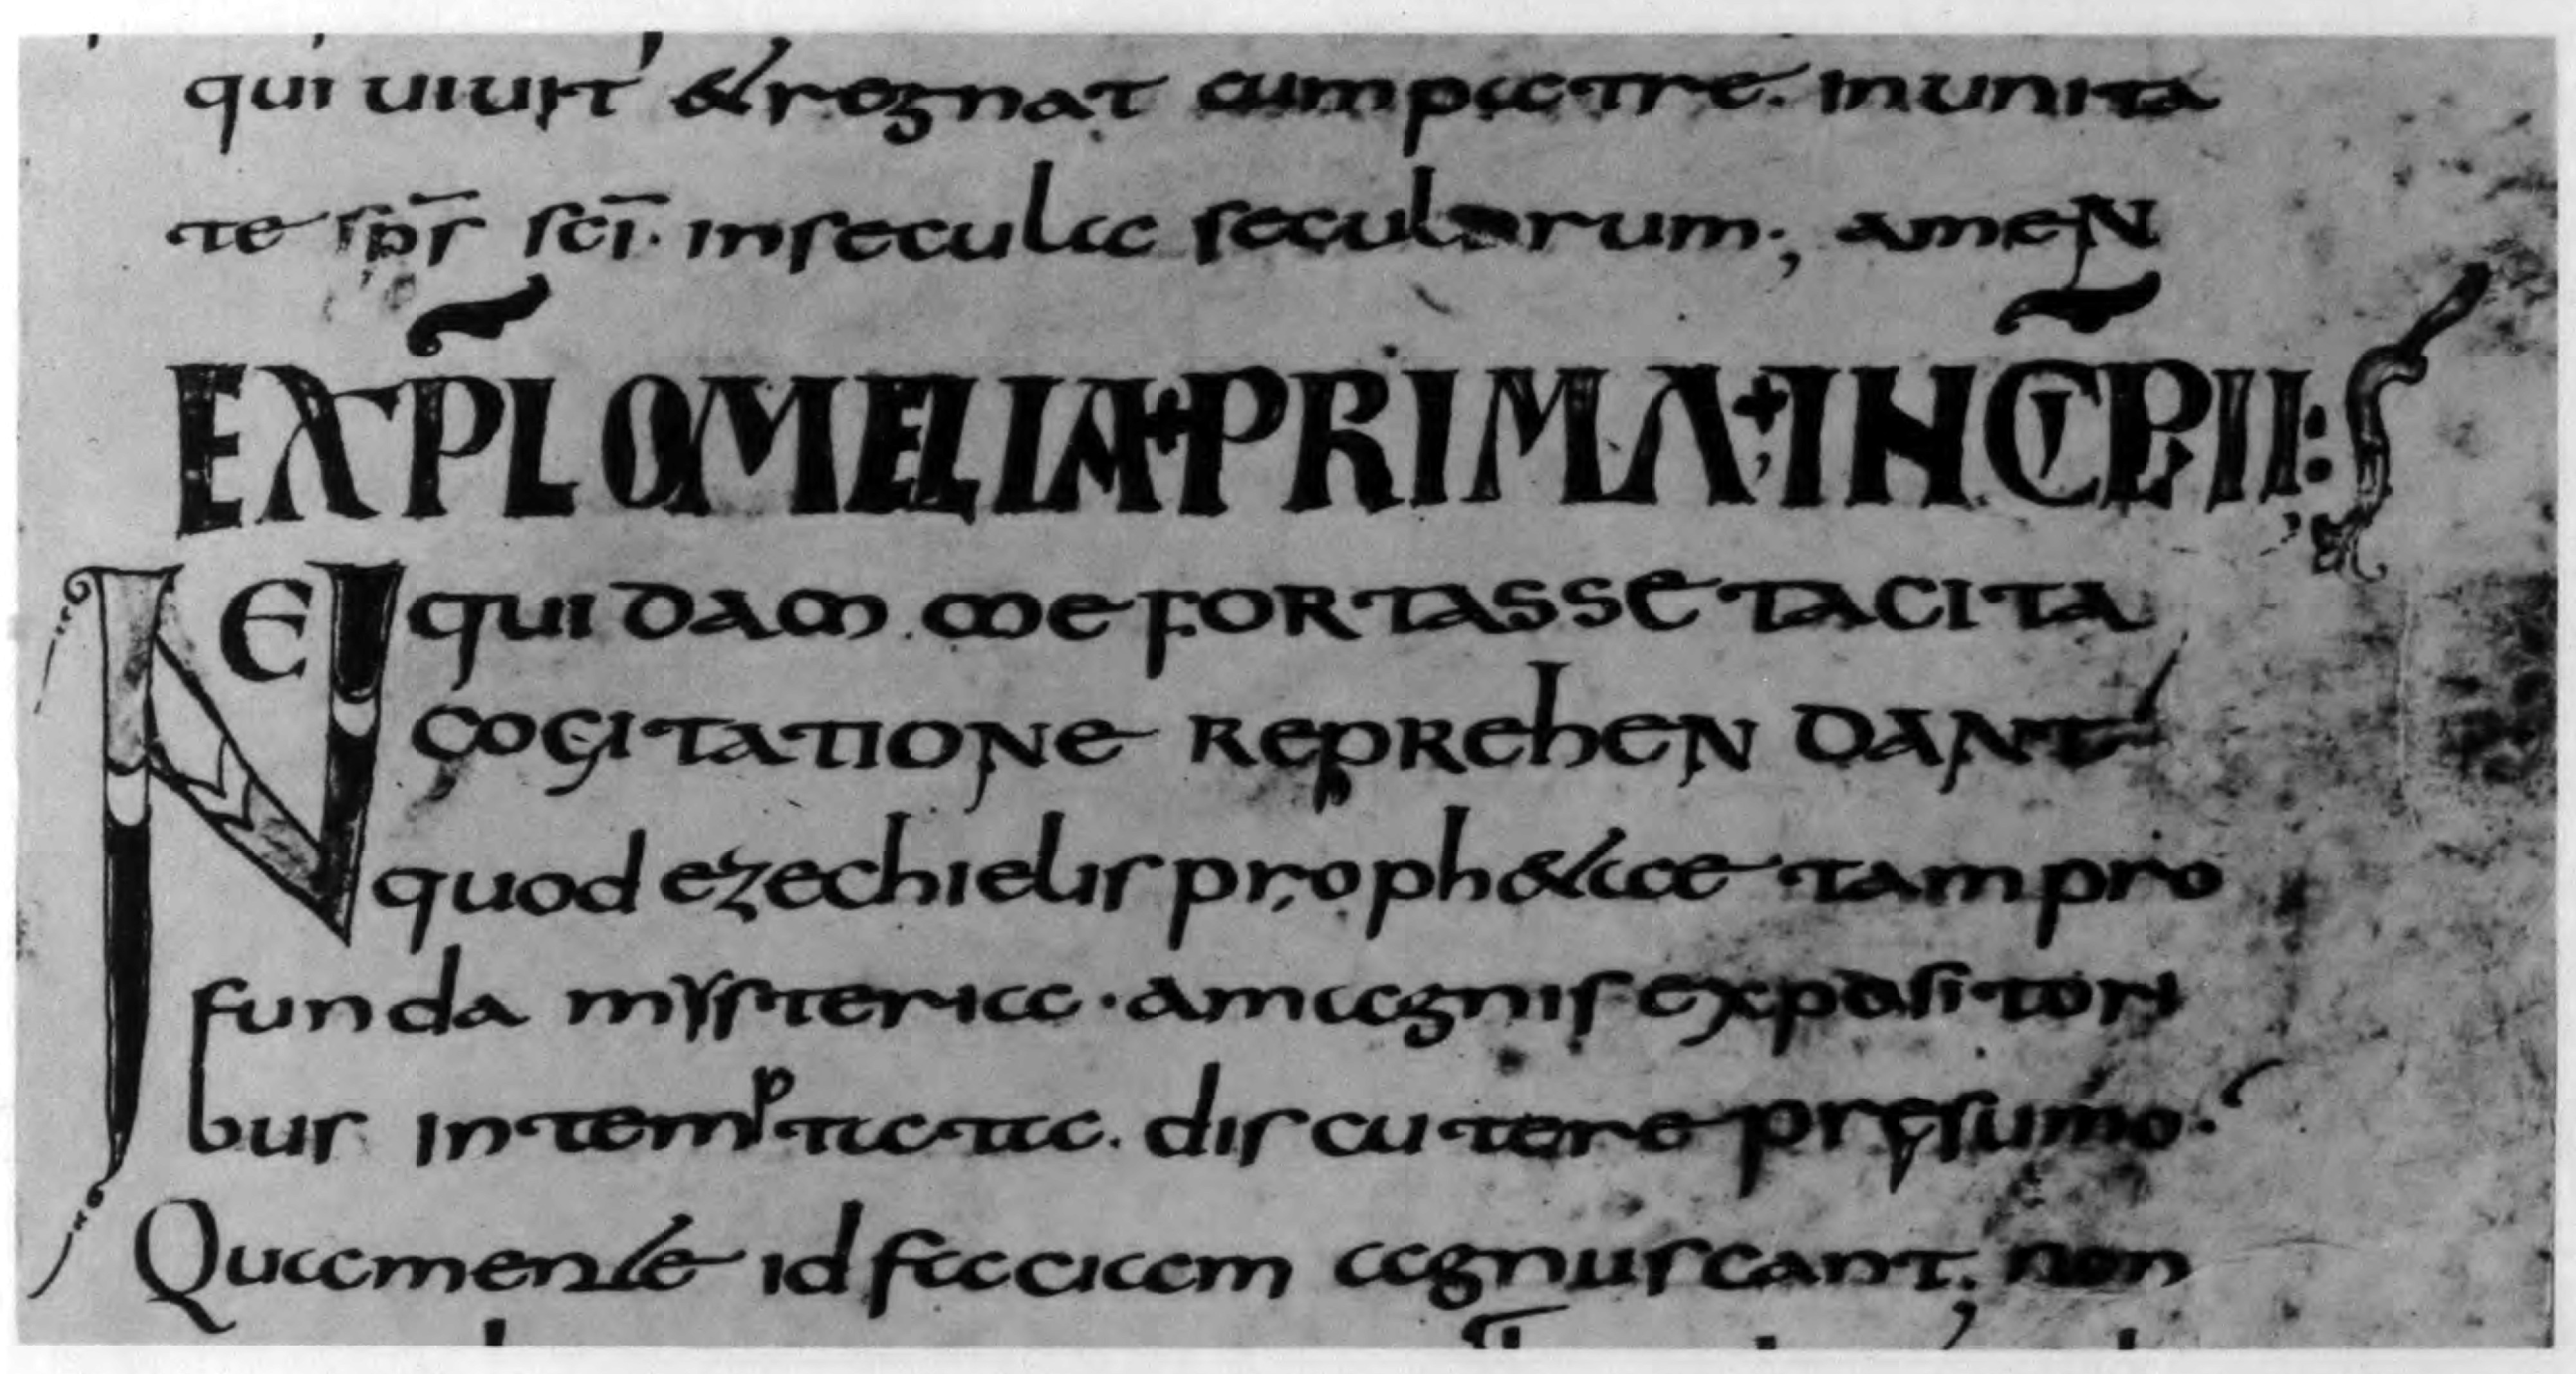 qui uiuit & regnat cum patre. in unita
te sp̄s sc̄i. in secula secularum; amen
EXP̃L OMELIA + PRIMA + INC̃IP II:
NEquidam me fortasse tacita
cogitatione reprehendant
quod ezechielis proph&ae tam pro
funda mysteria · a magnis expositori
bus intemᵖtata. discutere pręsumo.
Qua mente id faciam agnuscant; non